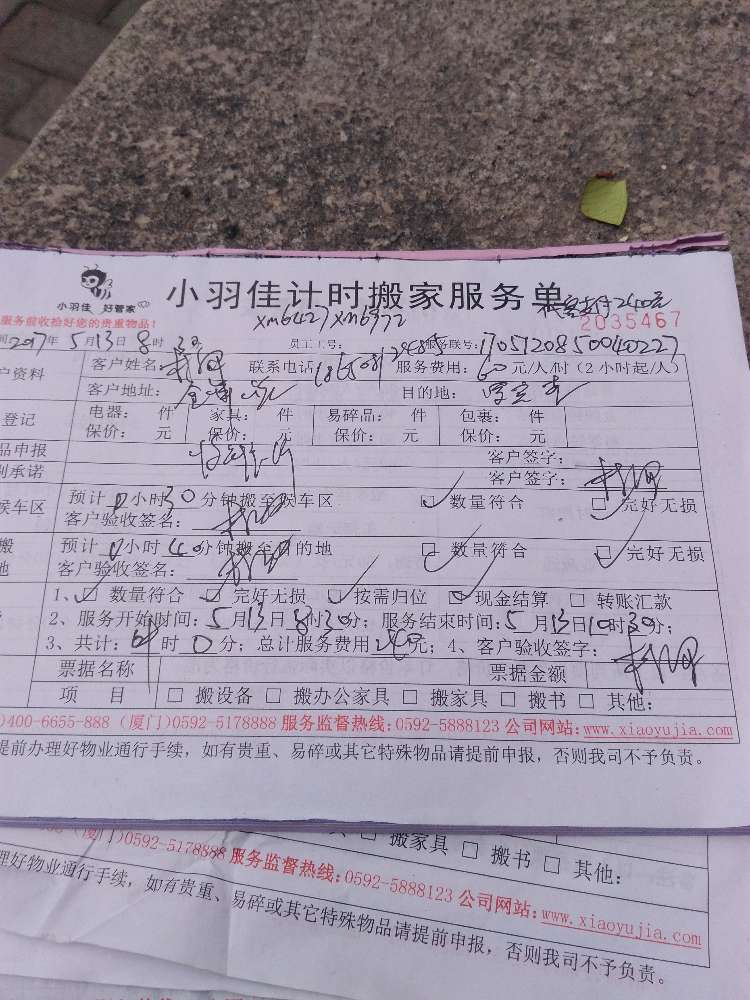 小羽佳 好管家
小羽佳计时搬家服务单
服务前收拾好您的贵重物品！
XM6427 XM6972
2035467
间2017年5月13日8时30 员工工号： 服务联号：1705120850040227
户资料 客户姓名： 联系电话： 服务费用：60元/人/时（2小时起/人）
客户地址： 目的地：
登记 电器： 件 家具： 件 易碎品： 件 包裹： 件
保价： 元 保价： 元 保价： 元 保价： 元
品申报 客户签字：
别承诺 客户签字：
候车区 预计0小时30分钟搬至候车区 数量符合 完好无损
客户验收签名：
搬 预计0小时40分钟搬至目的地 数量符合 完好无损
地 客户验收签名：
1、 数量符合 完好无损 按需归位 现金结算 转账汇款
2、服务开始时间：5月13日8时30分；服务结束时间：5月13日10时30分；
3、共计：4时0分；总计服务费用240元；4、客户验收签字：
票据名称 票据金额
项 目 搬设备 搬办公家具 搬家具 搬书 其他：
)400-6655-888（厦门)0592-5178888 服务监督热线：0592-5888123 公司网站：www.xiaoyujia.com
提前办理好物业通行手续，如有贵重、易碎或其它特殊物品请提前申报，否则我司不予负责。
搬家具 搬书 其他：
(厦门)0592-5178888 服务监督热线：0592-5888123 公司网站：www.xiaoyujia.com
理好物业通行手续，如有贵重、易碎或其它特殊物品请提前申报，否则我司不予负责。